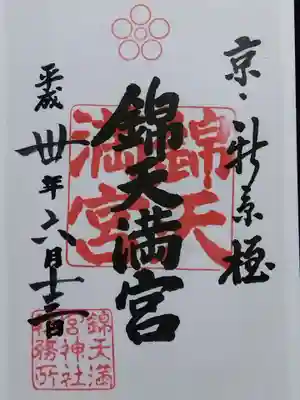 京・新京極
錦天満宮
錦天
満宮
平成卅年六月十三日
錦天満
宮神社
務所